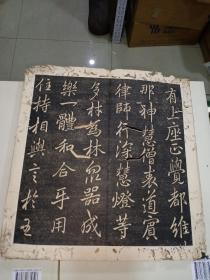 有上座正覺都維
那神慧僧表道寅
律師行深慧燈等
各林為林眾器成
樂一體和合手用
住持相與言於王